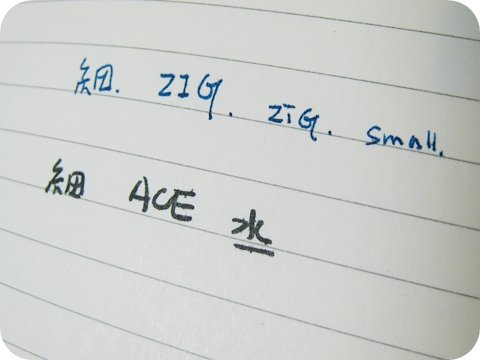 細. ZIG. ZIG. small.
細 ACE 水